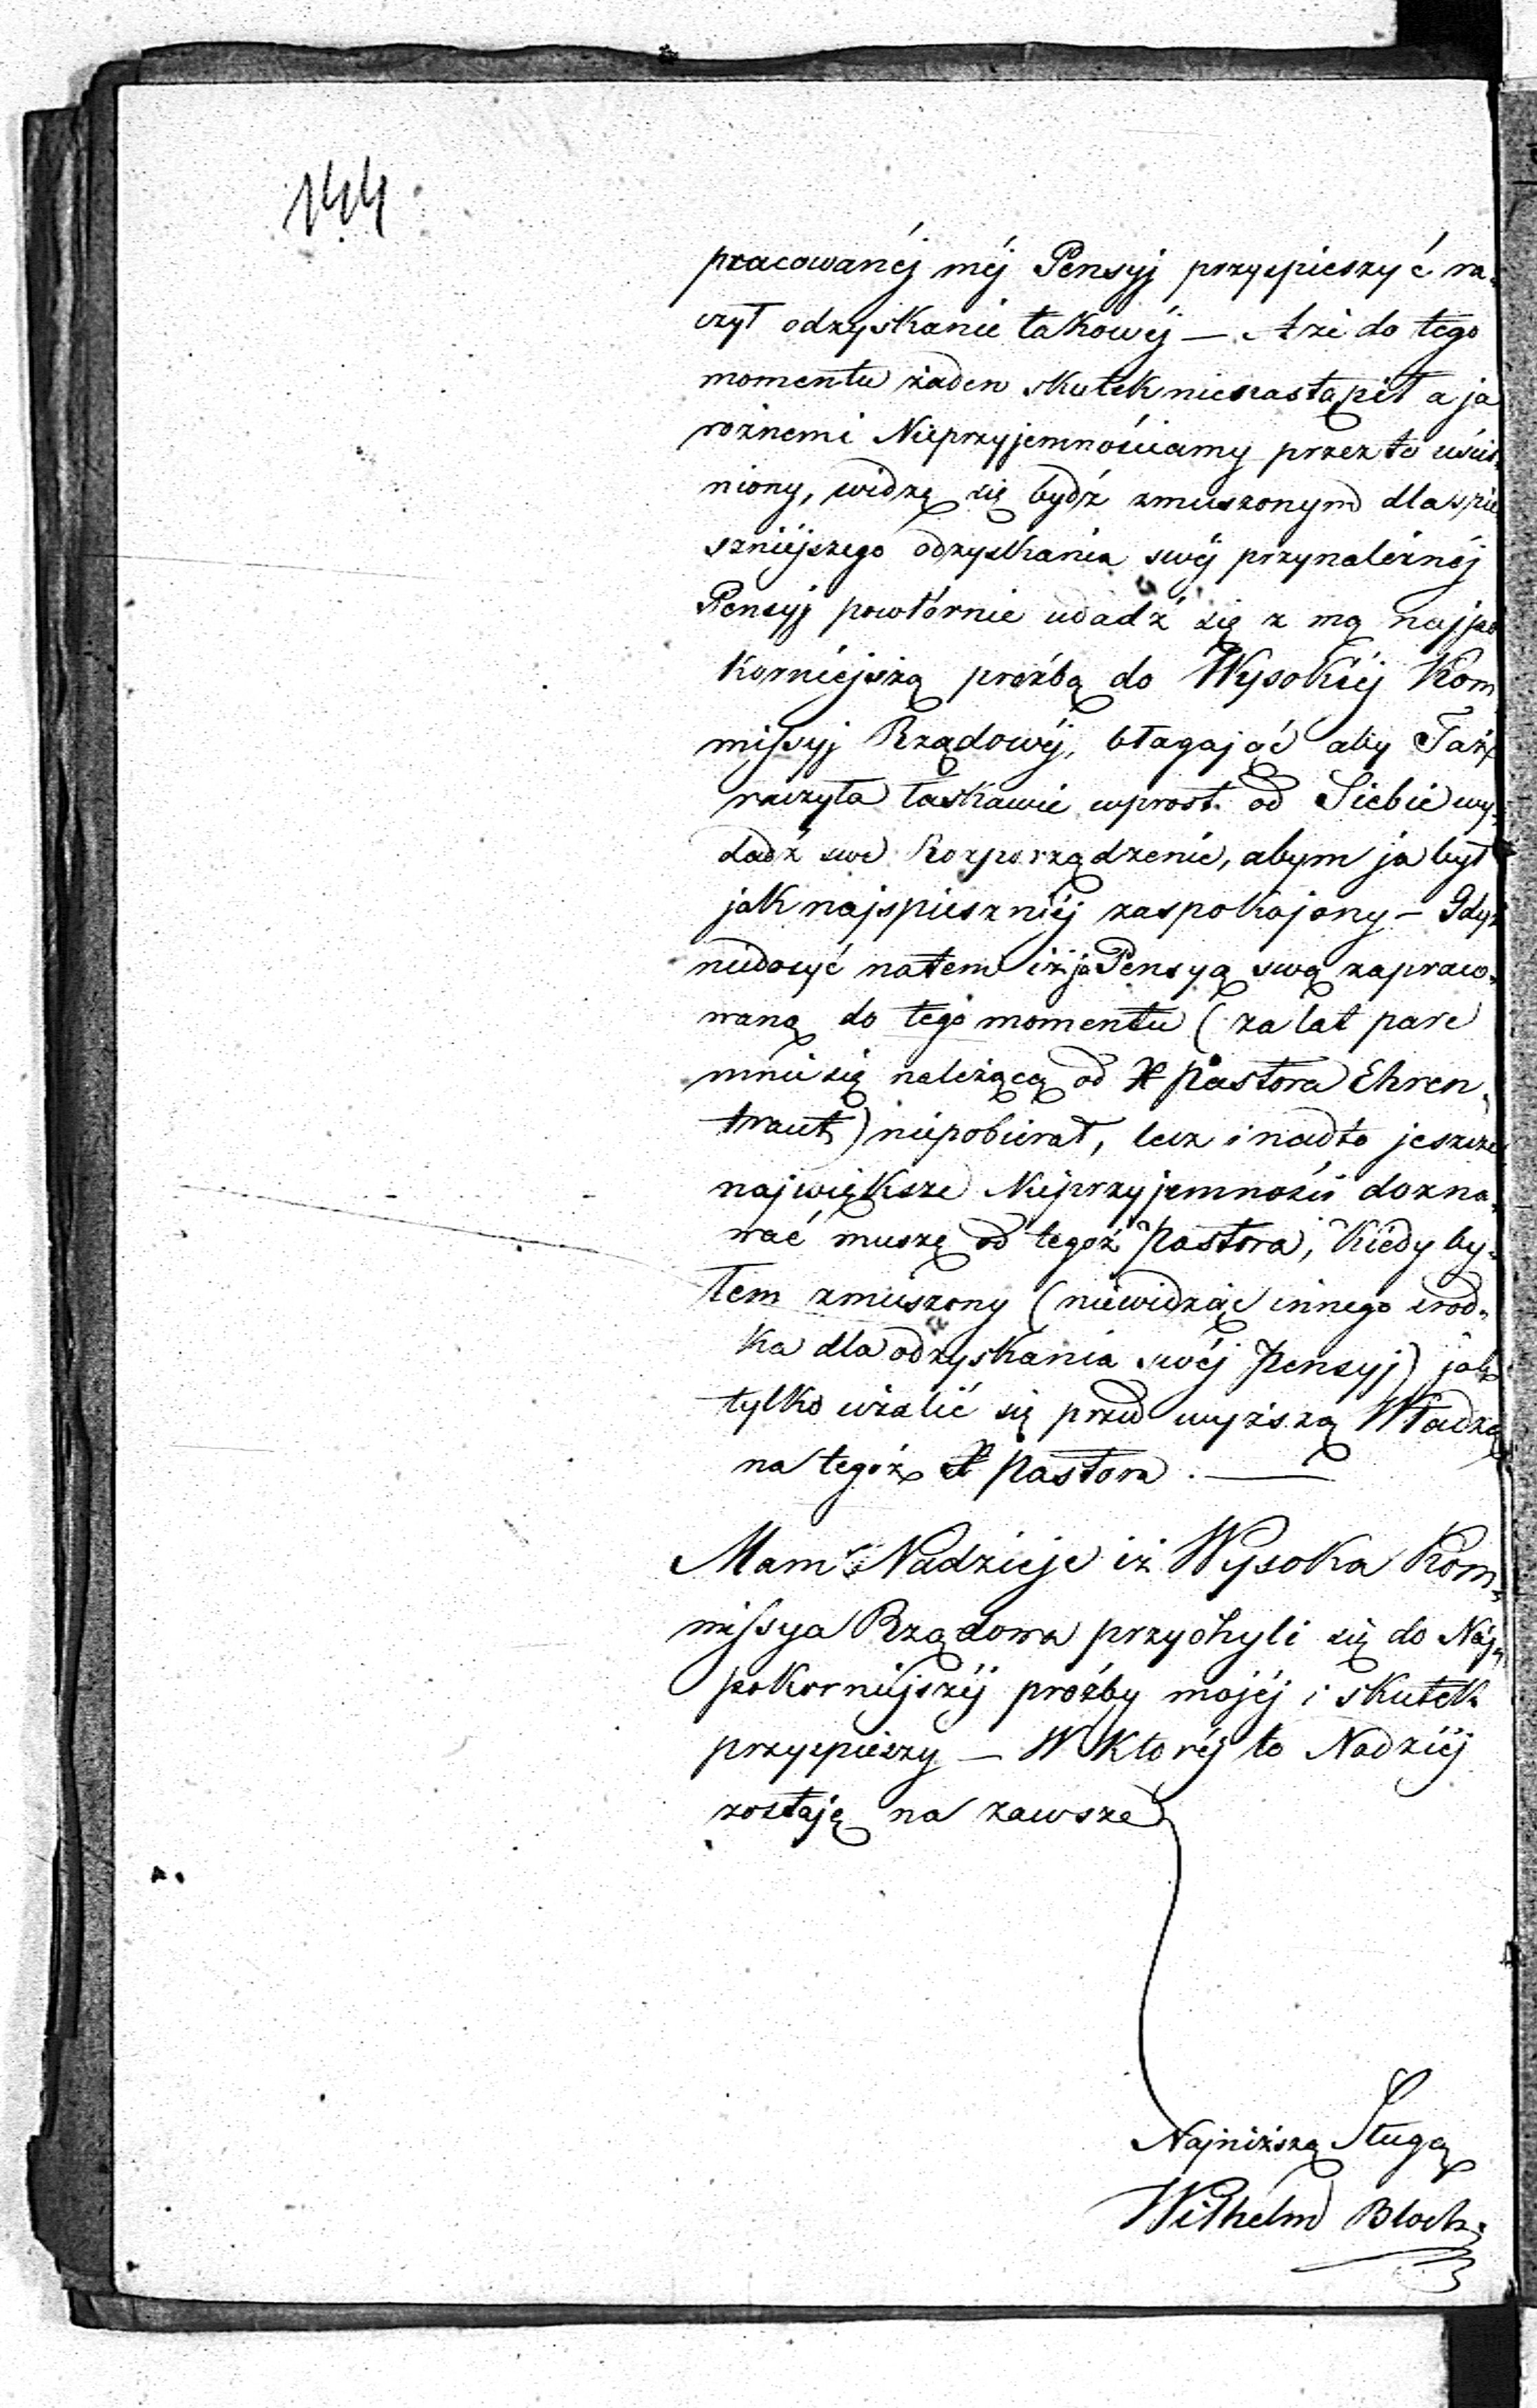 144
pracowanéj méj Pensyj przyspieszyć ra-
czył odzyskanie takowéj — A że do tego
momentu żaden skutek nienastąpił a ja
rożnemi Nieprzyjemnościamy przez to uciś-
niony, widzę się bydź zmuszonym dla spie
szniéjszego odzyskania swéj przynależnéj
Pensyj powtórnie udadź się z mą najpo
korniejszą proźbą do Wysokiéj Kom
missyj Rządowéj, błagając aby Taż
raczyła łaskawie wprost od Siebie wy-
dadź swe Rozporządzenie, abym ja był
jak najspieszniéj zaspokojony — Gdyż
niedosyć natem iż ja Pensyą swą zapraco-
waną do tego momentu (za lat pare
mnie się należącą od X Pastora Ehren-
traut) niepobierał, lecz i nadto jeszcze
największe Nieprzyjemności dozna-
wać muszę od tegoż Pastora, Kiedy by-
łem zmuszony (niewidząc innego srod-
ka dla odzyskania swéj Pensyj) jak
tylko użalić się przed wyższą Władzą
na tegoż X Pastora. —
Mam Nadzieje iż Wysoka Kom-
missya Rządowa przychyli się do Naj-
pokorniejszéj proźby mojéj i skutek
przyspieszy — W Któréj to Nadziéj
zostaję na zawsze
Najniższą Sługą
Wilhelm Bloch